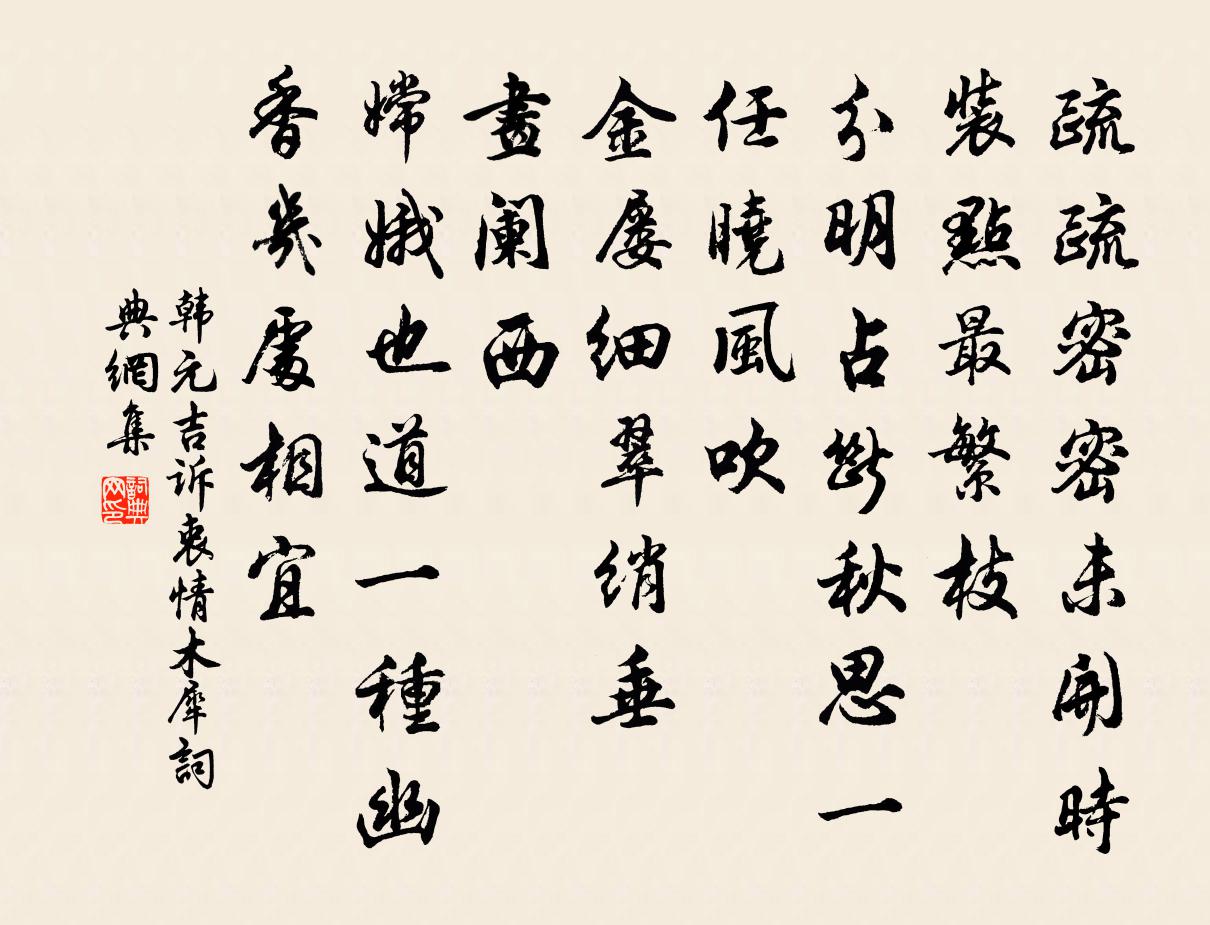 疏疏密密未開時
裝點最繁枝
分明占斷秋思一
任曉風吹
金屡細翠綃垂
畫阑西
嫦娥也道一種幽
香幾處相宜
韩元吉诉衷情木犀詞
典網集
詞典网印